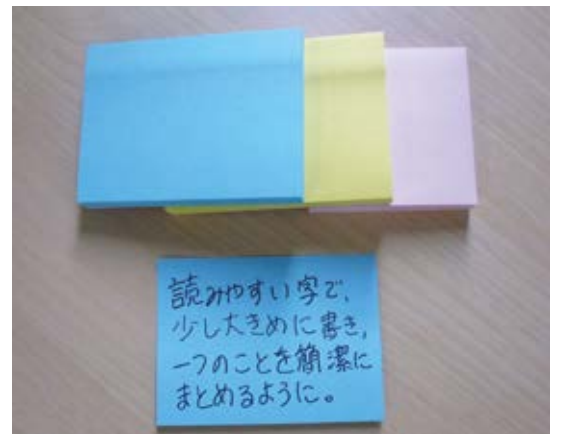 読みやすい字で、
少し大きめに書き、
一つのことを簡潔に
まとめるように。